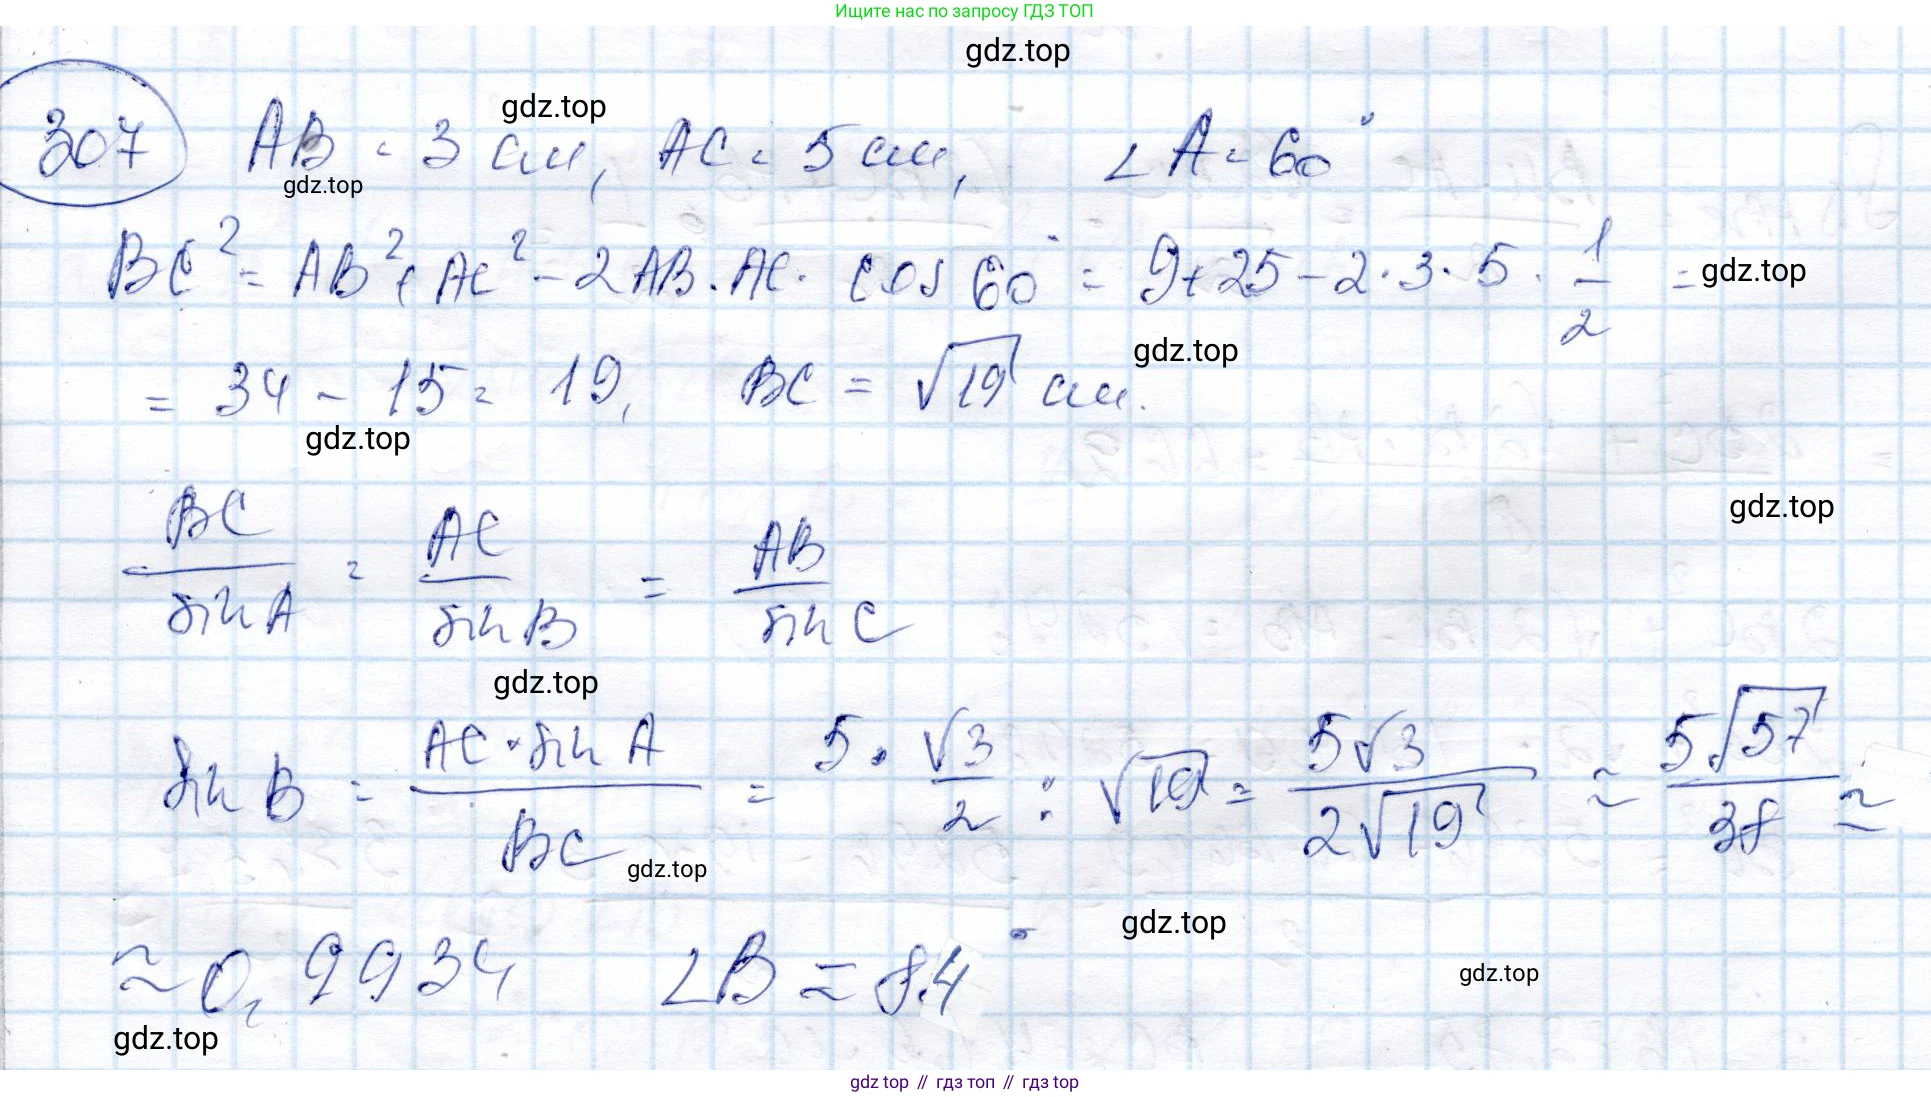 Ищите нас по запросу ГДЗ ТОП
gdz.top
307 AB = 3 см, AC = 5 см, ∠A = 60°
gdz.top
gdz.top
BC² = AB² + AC² - 2AB · AC · cos 60° = 9 + 25 - 2 · 3 · 5 · 1/2 =
gdz.top
= 34 - 15 = 19, BC = √19 см.
gdz.top
gdz.top
gdz.top
BC/sin A = AC/sin B = AB/sin C
gdz.top
sin B = AC · sin A/BC = 5 · √3/2 : √19 = 5√3/2√19 ≈ 5√57/38 ≈
gdz.top
gdz.top
≈ 0,9934 ∠B ≈ 84°
gdz.top
gdz.top
gdz top // гдз топ // гдз top